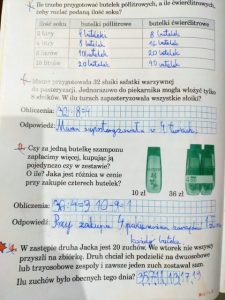 Ile trzeba przygotować butelek półlitrowych, a ile ćwierćlitrowych,
żeby rozlać podaną ilość soku?
ilość soku butelki półlitrowe butelki ćwierćlitrowe
2 litry 4 butelki 8 butelek
4 litry 8 butelek 16 butelek
5 litrów 10 butelek 20 butelek
10 litrów 20 butelek 40 butelek
Mama przygotowała 32 słoiki sałatki warzywnej
do pasteryzacji. Jednorazowo do piekarnika mogła włożyć tylko
8 słoików. W ilu turach zapasteryzowała wszystkie słoiki?
Obliczenia: 32:8=4
Odpowiedź: Mama w 4 turach.
Czy za jedną butelkę szamponu
zapłacimy więcej, kupując ją
pojedynczo czy w zestawie?
O ile? Jaka jest różnica w cenie
przy zakupie czterech butelek?
10 zł 36 zł
Obliczenia: 36:4=9 10-9=1
Odpowiedź: Przy zakupie 4 1 zł
butelkę
W zastępie druha Jacka jest 20 zuchów. We wtorek nie wszyscy
przyszli na zbiórkę. Druh chciał ich podzielić na dwuosobowe
lub trzyosobowe zespoły i zawsze jeden zuch zostawał sam.
Ilu zuchów było obecnych tego dnia?